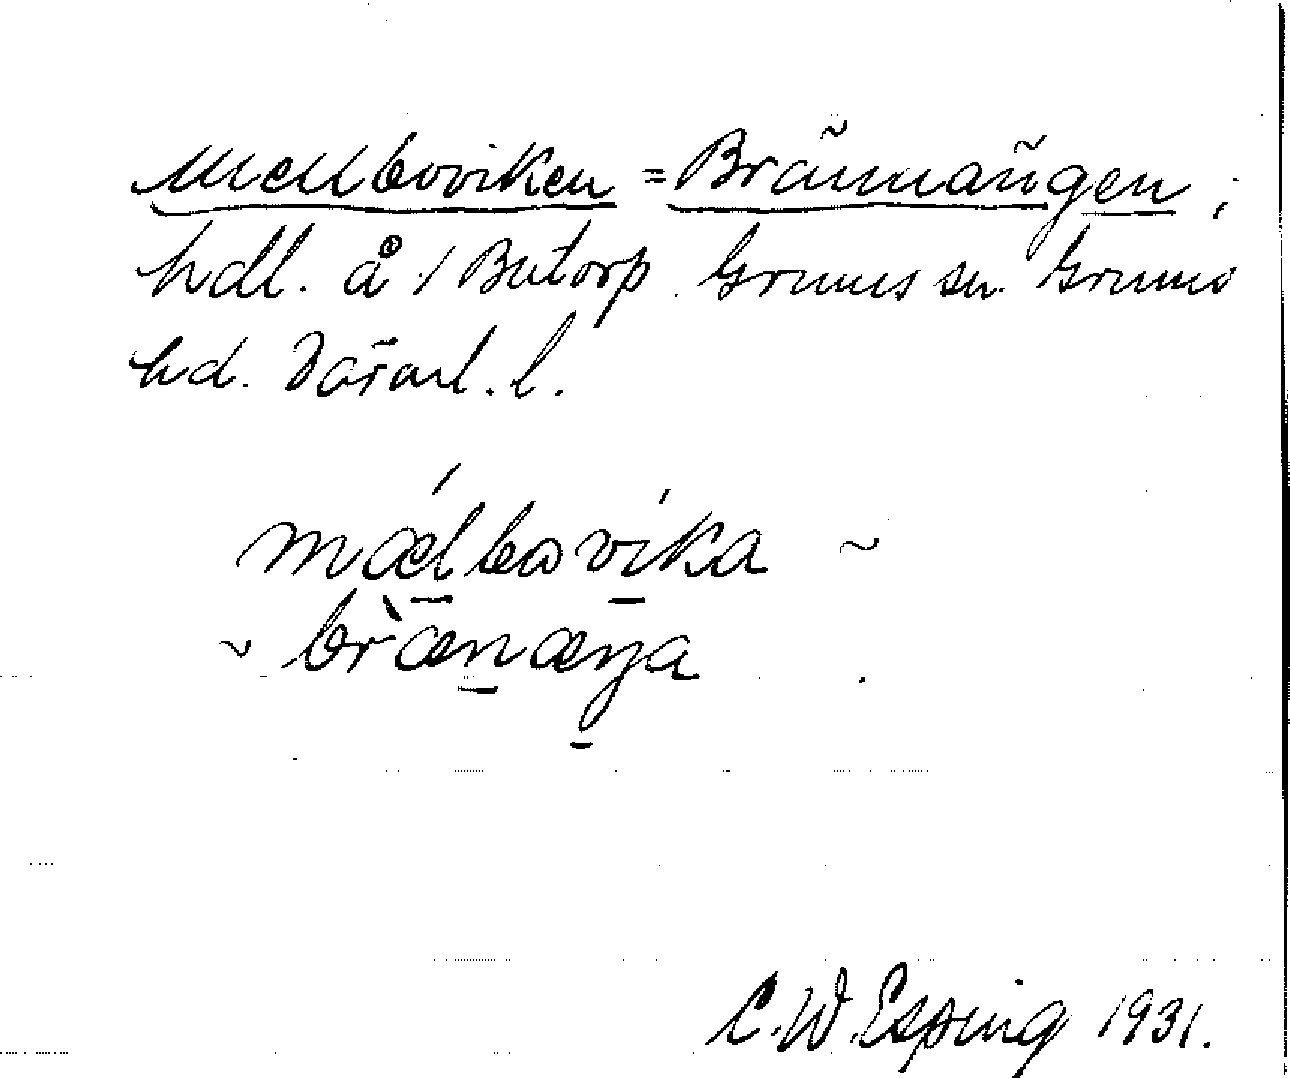 Mellboviken = Brännängen ;
hdl. å 1/1 Butorp. Grums sn. Grums
hd. Värml. l.
mǽlbωvíka ~
~ bræ̀naŋa
C. W. Esping 1931.